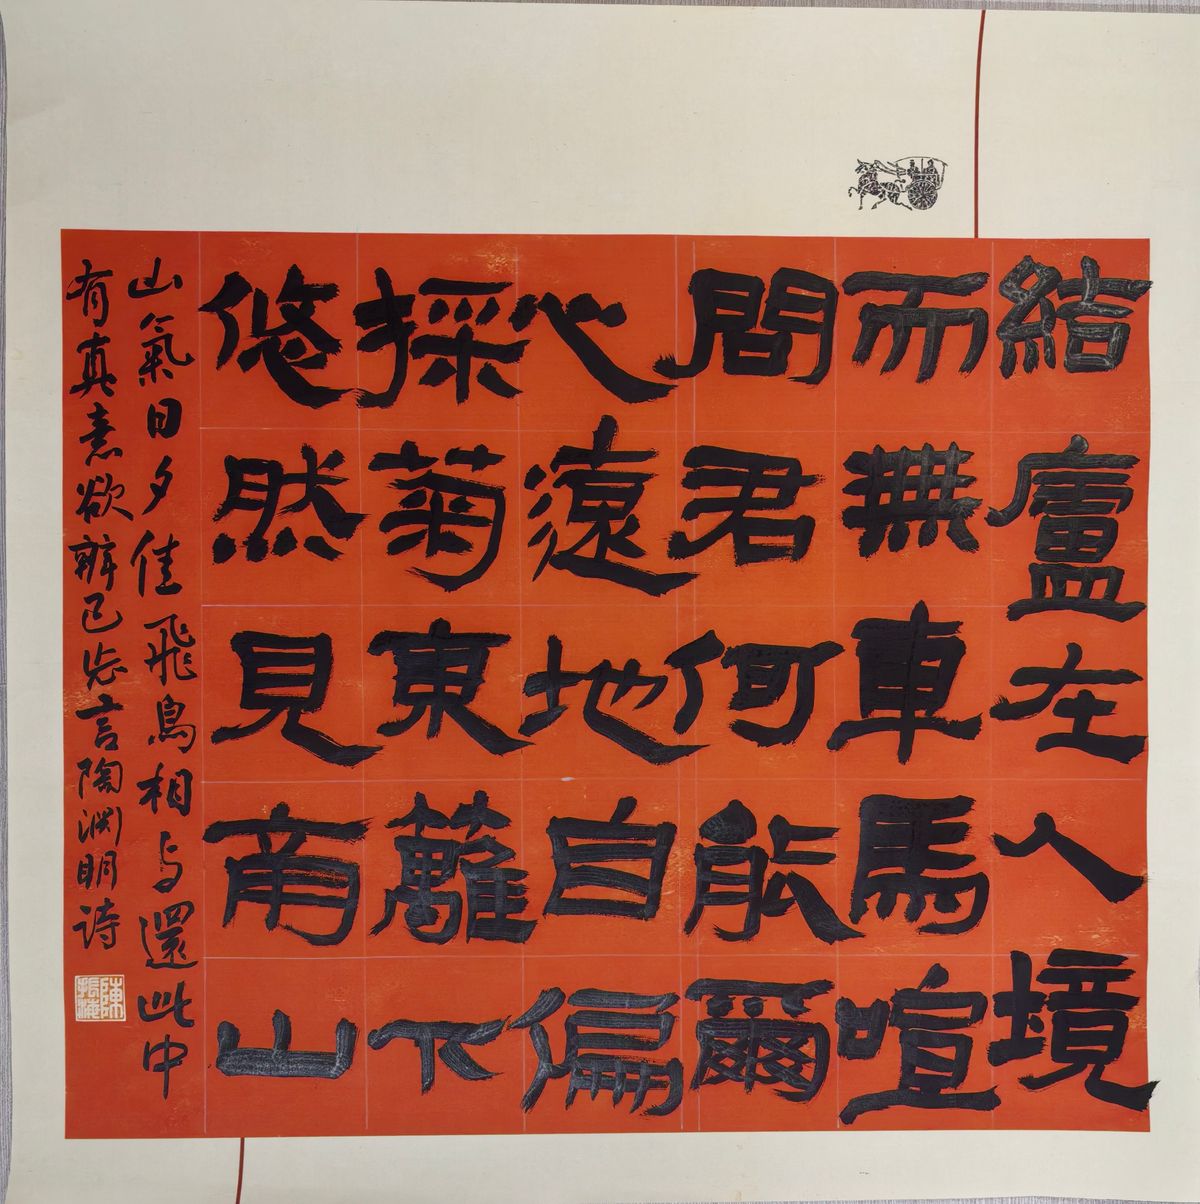 結廬在人境
而無車馬喧
問君何能爾
心遠地自偏
採菊東籬下
悠然見南山
山氣日夕佳飛鳥相与還此中
有真意欲辨已忘言陶淵明詩
陳振濂